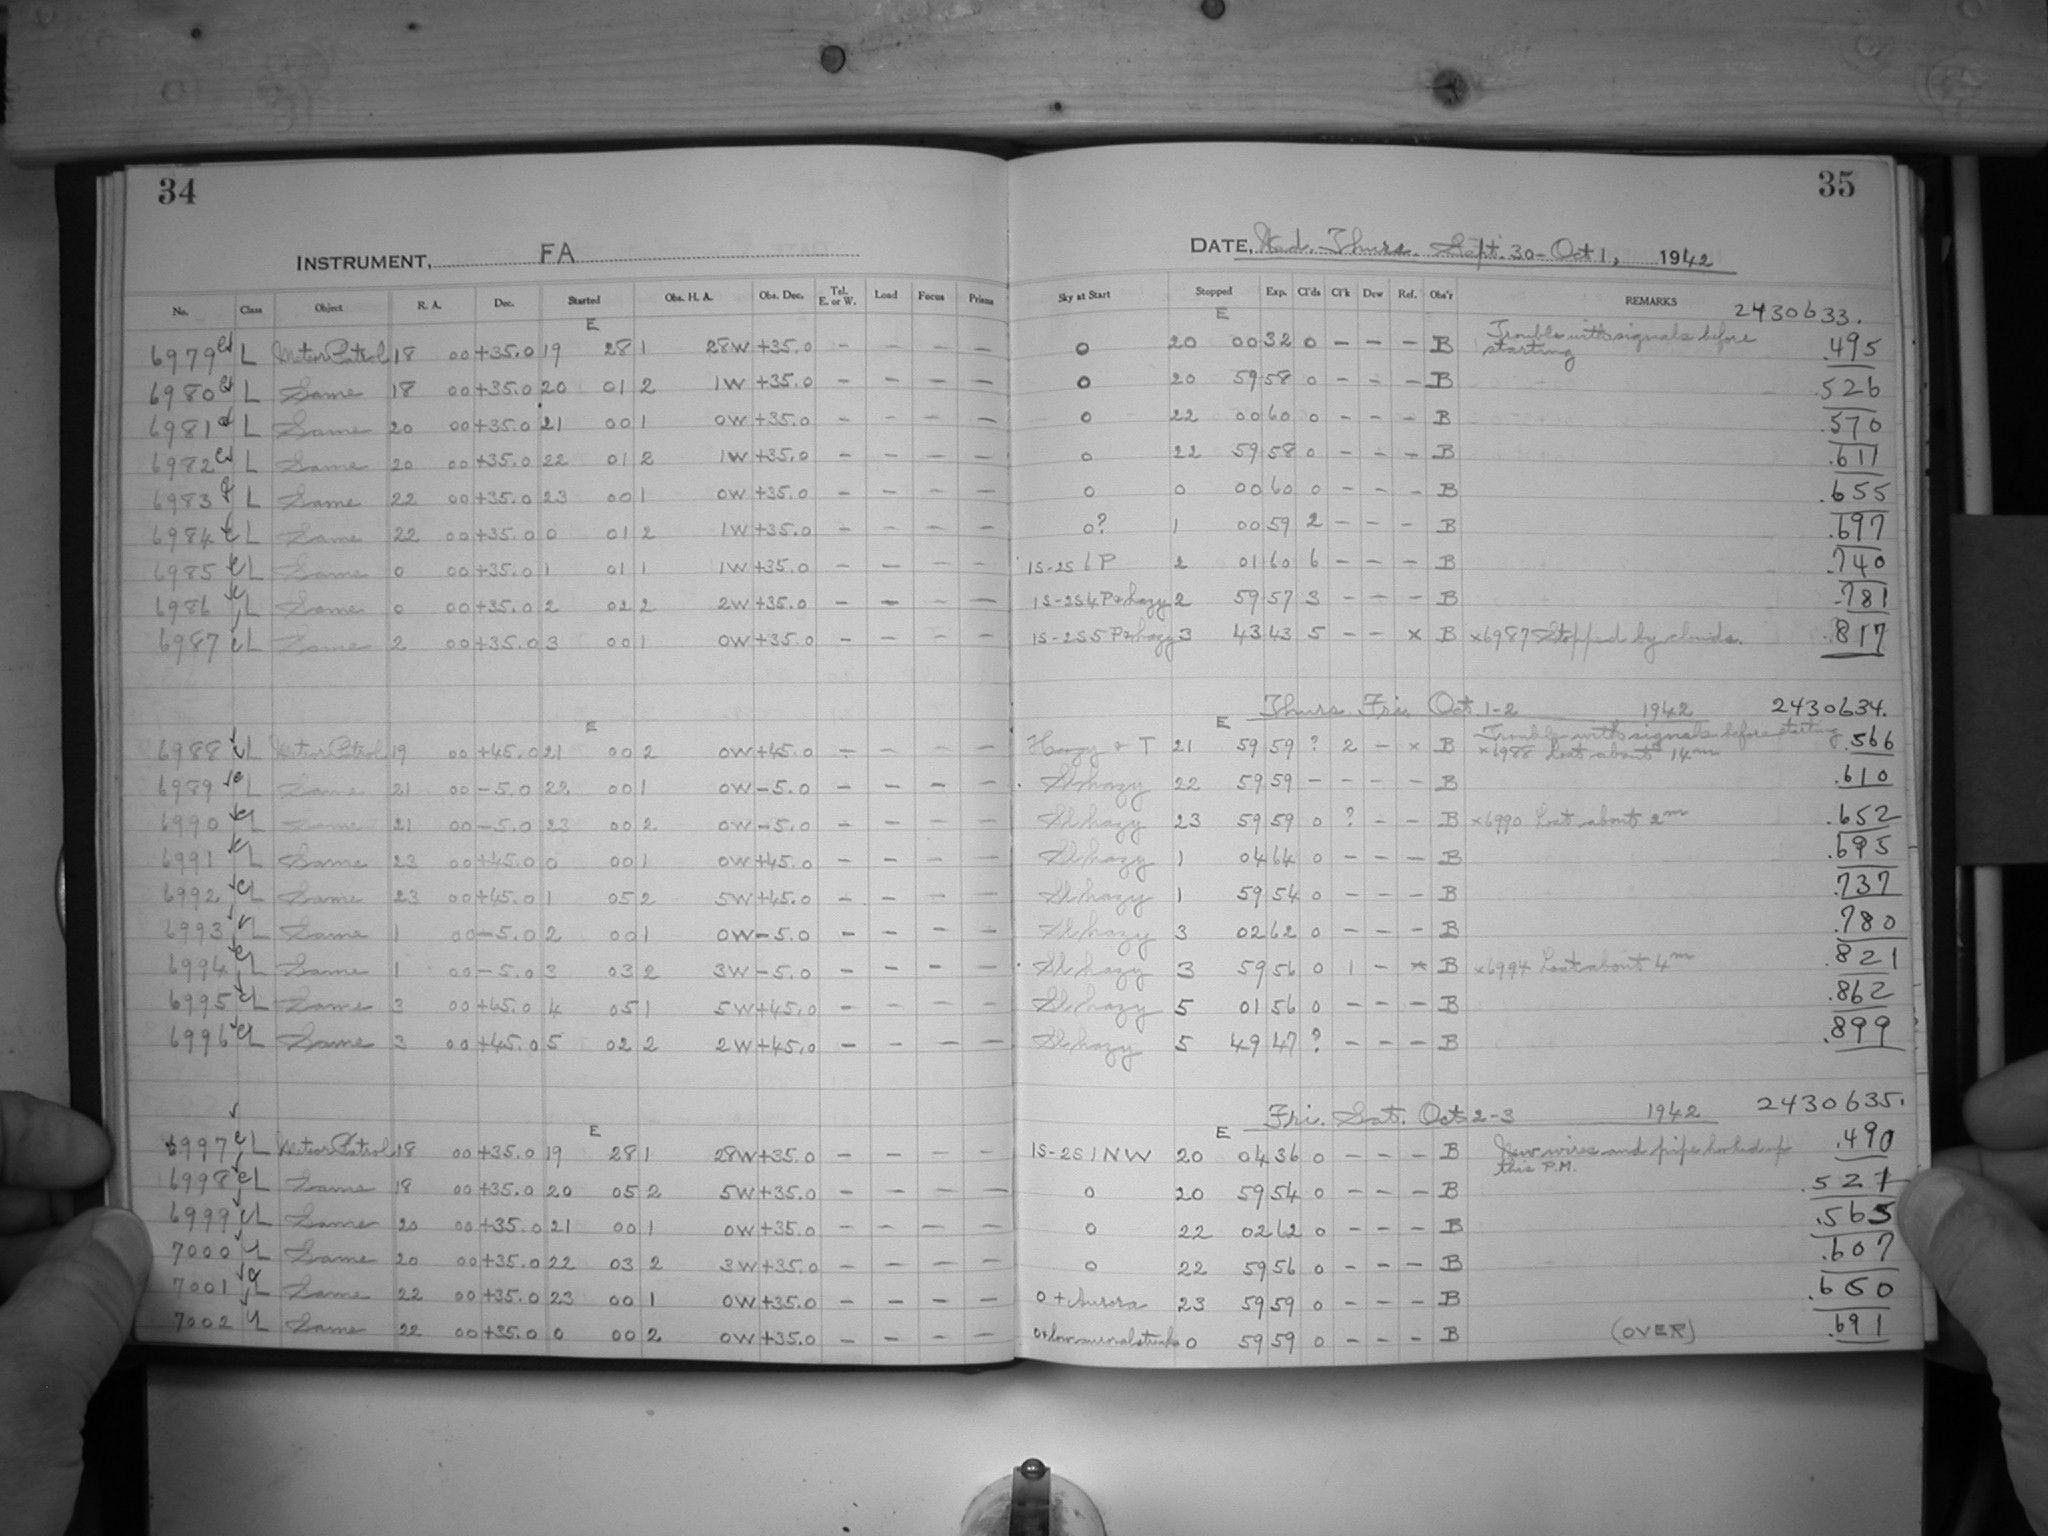 34
35
INSTRUMENT, FA
DATE, Wed. Thurs. Sept. 30 - Oct 1, 1942
No. Class Object R. A. Dec. Started Obs. H. A. Obs. Dec. Tel. E. or W. Load Focus Prisms Sky at Start Stopped Exp. Cl'ds Cl'k Dew Ref. Obs'r REMARKS
E E 2430633.
6979 L Meteor Patrol 18 00 +35.0 19 28 1 28W +35.0 - - - - 0 20 00 32 0 - - - B Trouble with signals before starting .495
6980 L Same 18 00 +35.0 20 01 2 1W +35.0 - - - - 0 20 59 58 0 - - - B .526
6981 L Same 20 00 +35.0 21 00 1 0W +35.0 - - - - 0 22 00 60 0 - - - B .570
6982 L Same 20 00 +35.0 22 01 2 1W +35.0 - - - - 0 22 59 58 0 - - - B .611
6983 L Same 22 00 +35.0 23 00 1 0W +35.0 - - - - 0 0 00 60 0 - - - B .655
6984 L Same 22 00 +35.0 0 01 2 1W +35.0 - - - - 0? 1 00 59 2 - - - B .697
6985 L Same 0 00 +35.0 1 01 1 1W +35.0 - - - - 1S-2S 6 P 2 01 60 6 - - - B .740
6986 L Same 0 00 +35.0 2 02 2 2W +35.0 - - - - 1S-2S 4 P + hazy 2 59 57 3 - - - B .781
6987 L Same 2 00 +35.0 3 00 1 0W +35.0 - - - - 1S-2S 5 P + hazy 3 43 43 5 - - x B x6987 Stopped by clouds. .817
E E Thurs. Fri. Oct 1-2 1942 2430634.
6988 L Meteor Patrol 19 00 +45.0 21 00 2 0W +45.0 - - - - Hazy + T 21 59 59 ? 2 - x B Trouble with signals before starting x6988 Lost about 14m .566
6989 L Same 21 00 -5.0 22 00 1 0W -5.0 - - - - Sl hazy 22 59 59 - - - - B .610
6990 L Same 21 00 -5.0 23 00 2 0W -5.0 - - - - Sl hazy 23 59 59 0 ? - - B x6990 Lost about 2m .652
6991 L Same 23 00 +45.0 0 00 1 0W +45.0 - - - - Sl hazy 1 04 64 0 - - - B .695
6992 L Same 23 00 +45.0 1 05 2 5W +45.0 - - - - Sl hazy 1 59 54 0 - - - B .737
6993 L Same 1 00 -5.0 2 00 1 0W -5.0 - - - - Sl hazy 3 02 62 0 - - - B .780
6994 L Same 1 00 -5.0 3 03 2 3W -5.0 - - - - Sl hazy 3 59 56 0 1 - x B x6994 Lost about 4m .821
6995 L Same 3 00 +45.0 4 05 1 5W +45.0 - - - - Sl hazy 5 01 56 0 - - - B .862
6996 L Same 3 00 +45.0 5 02 2 2W +45.0 - - - - Sl hazy 5 49 47 ? - - - B .899
E E Fri. Sat. Oct 2-3 1942 2430635.
6997 L Meteor Patrol 18 00 +35.0 19 28 1 28W +35.0 - - - - 1S-2S 1 NW 20 04 36 0 - - - B New wires and pipe hooked up this P.M. .490
6998 L Same 18 00 +35.0 20 05 2 5W +35.0 - - - - 0 20 59 54 0 - - - B .527
6999 L Same 20 00 +35.0 21 00 1 0W +35.0 - - - - 0 22 02 62 0 - - - B .565
7000 L Same 20 00 +35.0 22 03 2 3W +35.0 - - - - 0 22 59 56 0 - - - B .607
7001 L Same 22 00 +35.0 23 00 1 0W +35.0 - - - - 0 + Aurora 23 59 59 0 - - - B .650
7002 L Same 22 00 +35.0 0 00 2 0W +35.0 - - - - 0 + low auroral streaks 0 59 59 0 - - - B (OVER) .691